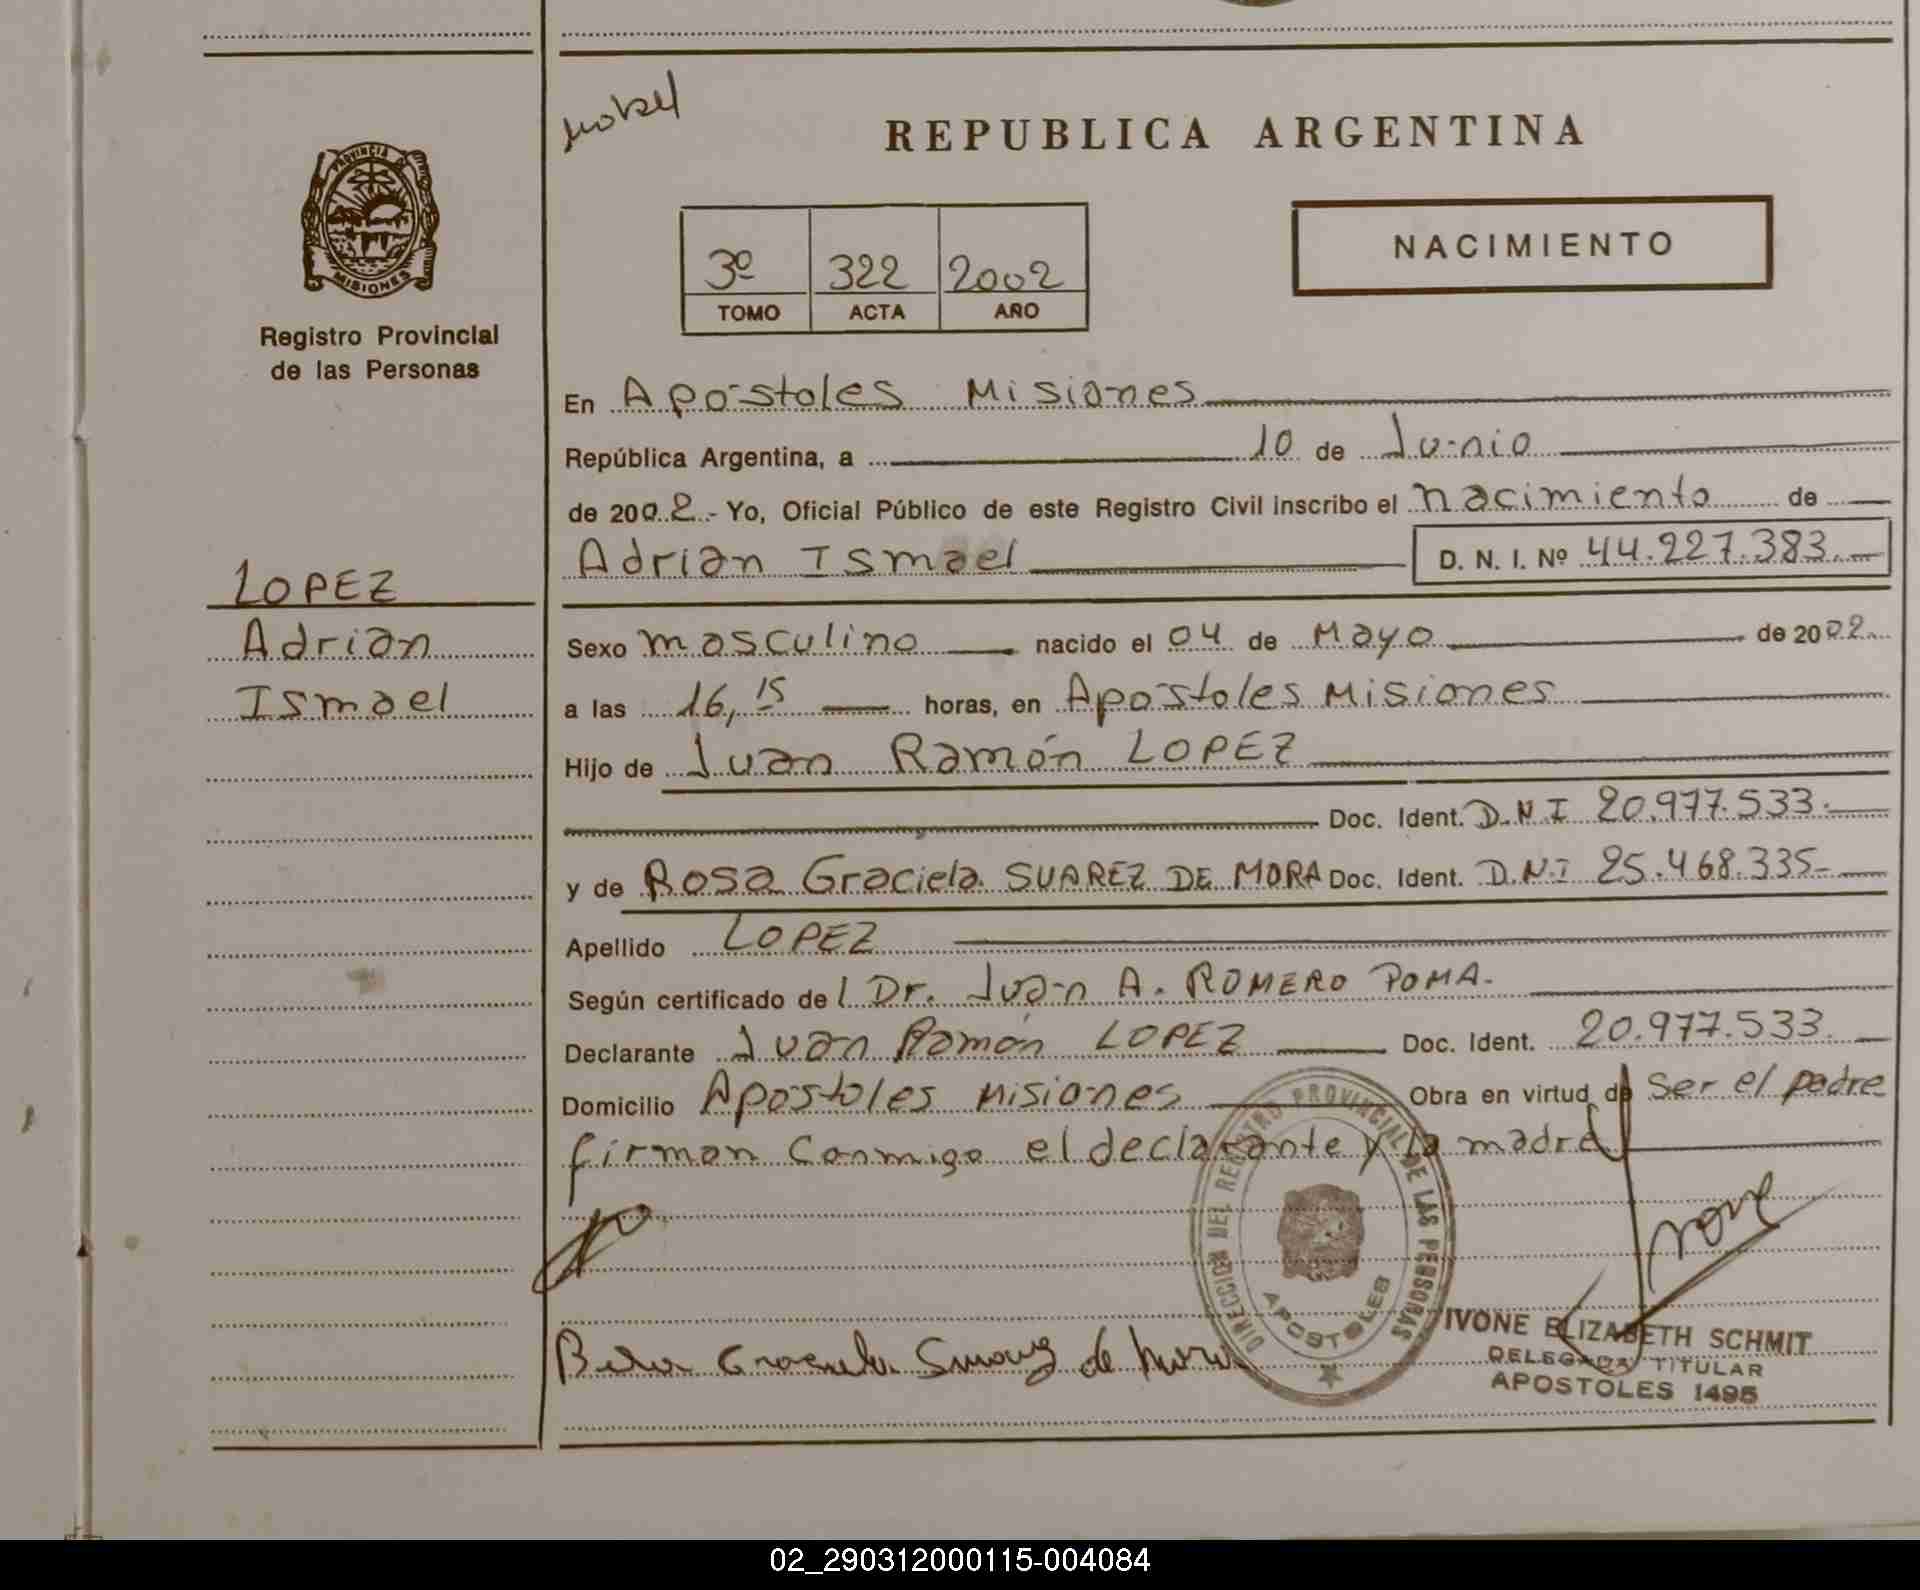 REPUBLICA ARGENTINA
PROVINCIA DE
MISIONES
Registro Provincial
de las Personas
3º 322 2002
TOMO ACTA AÑO
NACIMIENTO
En Apóstoles Misiones
República Argentina, a 10 de Junio
de 2002.- Yo, Oficial Público de este Registro Civil inscribo el nacimiento de
Adrian Ismael D. N. I. Nº 44.227.383
LOPEZ
Adrian
Ismael
Sexo masculino nacido el 04 de Mayo de 2002
a las 16,15 horas, en Apóstoles Misiones
Hijo de Juan Ramón LOPEZ
Doc. Ident. D.N.I 20.977.533.
y de Rosa Graciela SUAREZ DE MORA Doc. Ident. D.N.I 25.468.335-
Apellido LOPEZ
Según certificado del Dr. Juan A. ROMERO POMA.
Declarante Juan Ramón LOPEZ Doc. Ident. 20.977.533.
Domicilio Apóstoles Misiones Obra en virtud de ser el padre
firman conmigo el declarante y la madre
DIRECCION DEL REGISTRO PROVINCIAL DE LAS PERSONAS
APOSTOLES
Graciela Suarez de Mora
IVONE ELIZABETH SCHMIT
DELEGADA TITULAR
APOSTOLES 1495
02_290312000115-004084